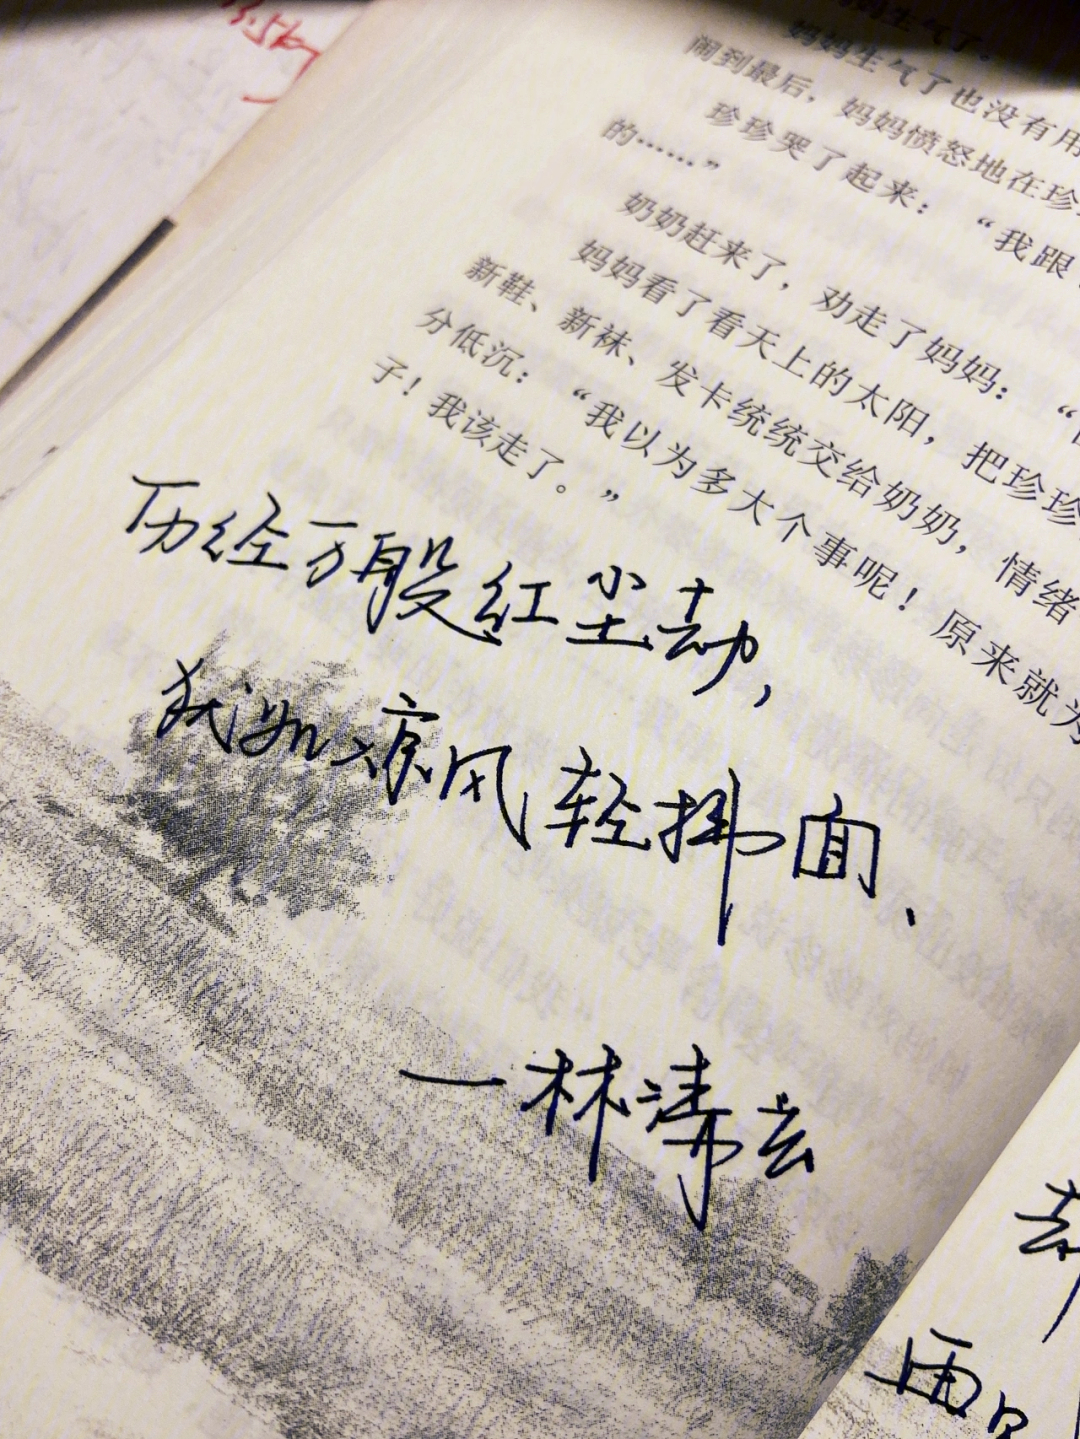 3.5km
妈妈生气了。
妈妈生气了也没有用
闹到最后，妈妈愤怒地在珍
珍珍哭了起来：“我跟
的……”
奶奶赶来了，劝走了妈妈：“
妈妈看了看天上的太阳，把珍珍
新鞋、新袜、发卡统统交给奶奶，情绪
分低沉：“我以为多大个事呢！原来就为
子！我该走了。”
历经万般红尘劫，
犹如凉风轻拂面、
—林清玄